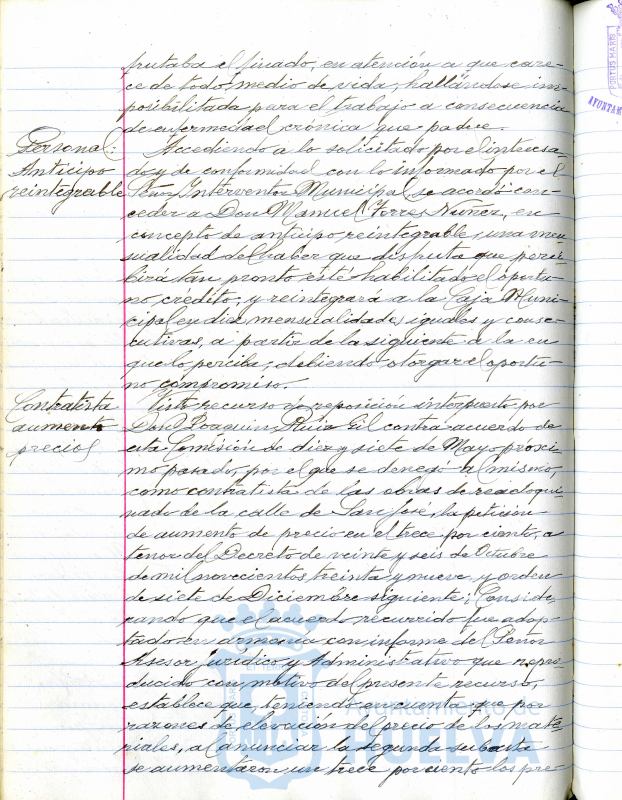 frutaba el finado, en atención a que care-
ce de todo medio de vida, hallándose im-
posibilitada para el trabajo a consecuencia
de enfermedad crónica que padece.
Personal:
Anticipo
reintegrable
Accediendo a lo solicitado por el interesa-
do y de conformidad con lo informado por el
Señor Interventor Municipal se acordó con-
ceder a Don Manuel Torres Nuñez, en
concepto de anticipo reintegrable, una men-
sualidad del haber que disfruta que perci-
birá tan pronto esté habilitado el oportu-
no crédito; y reintegrará a la Caja Muni-
cipal en diez mensualidades iguales y conse-
cutivas, a partir de la siguiente a la en
que lo perciba, debiendo otorgar el oportu-
no compromiso.
Contratista
aumento
precios
Visto recurso de reposición interpuesto por
Don Joaquin Ruiz Gil contra acuerdo de
esta Comisión de diez y siete de Mayo proxi-
mo pasado, por el que se denegó al mismo,
como contratista de las obras de readoqui-
nado de la calle de San José, la petición
de aumento de precio en el trece por ciento, a
tenor del Decreto de veinte y seis de Octubre
de mil novecientos treinta y nueve y orden
de siete de Diciembre siguiente; Conside-
rando que el acuerdo recurrido fue adop-
tado en armonia con informe del Señor
Asesor juridico y Administrativo que repro-
ducido con motivo del presente recurso,
establece que, teniendo en cuenta que por
razones de elevación del precio de los mate-
riales, al anunciar la segunda subasta
se aumentaron un trece por ciento los pre-
PORTUS MARIS
AYUNTAM
Ayuntamiento de
HUELVA